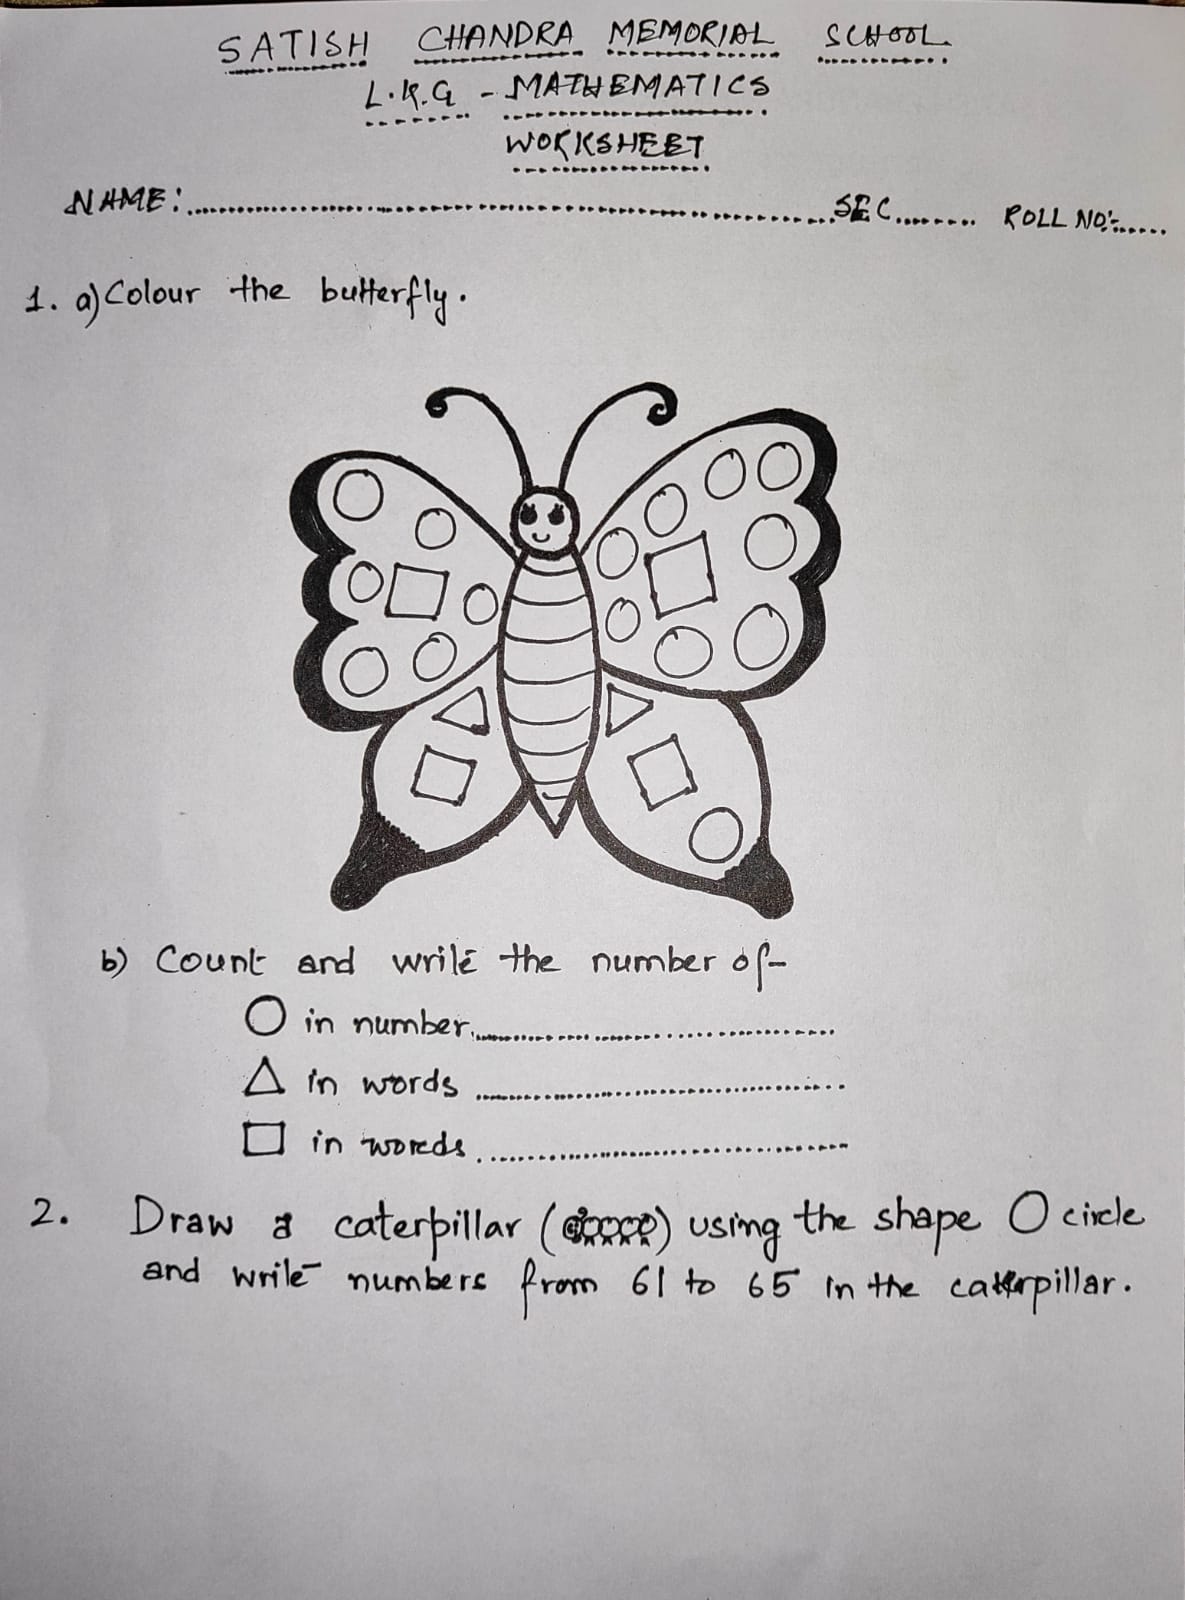 SATISH CHANDRA MEMORIAL SCHOOL
L.K.G - MATHEMATICS
WORKSHEET
NAME:.......................................................SEC........ ROLL NO:-......
1. a) Colour the butterfly.
b) Count and write the number of-
in number..............................
in words ..............................
in words ..............................
2. Draw a caterpillar ( ) using the shape O circle
and write numbers from 61 to 65 in the caterpillar.